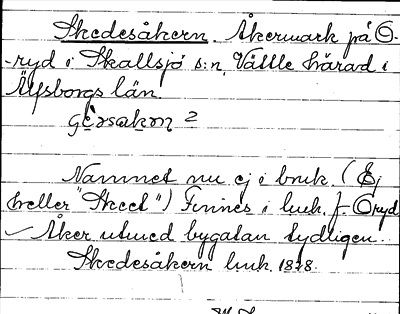 Skedesåkern. Åkermark på O-
-ryd i Skallsjö s:n, Vättle härad i
Älfsborgs län
Namnet nu ej i bruk. (Ej
heller "Sked") Finnes i luk. f. Oryd
Åker utmed bygatan tydligen.
Skedesåkern luk. 1828.